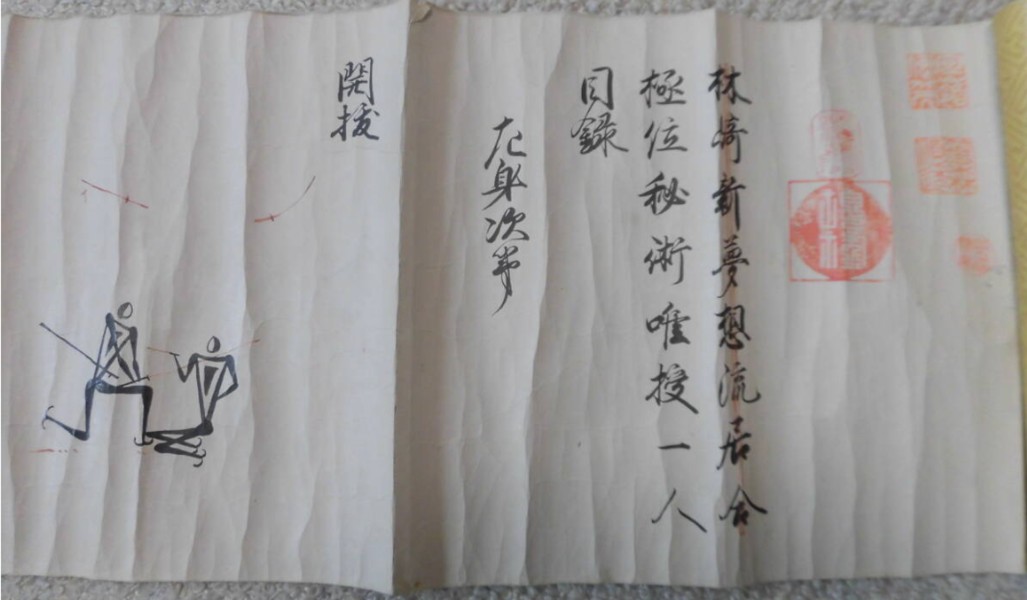 林崎新夢想流居合
極位秘術唯授一人
目録
左身次事
開抜